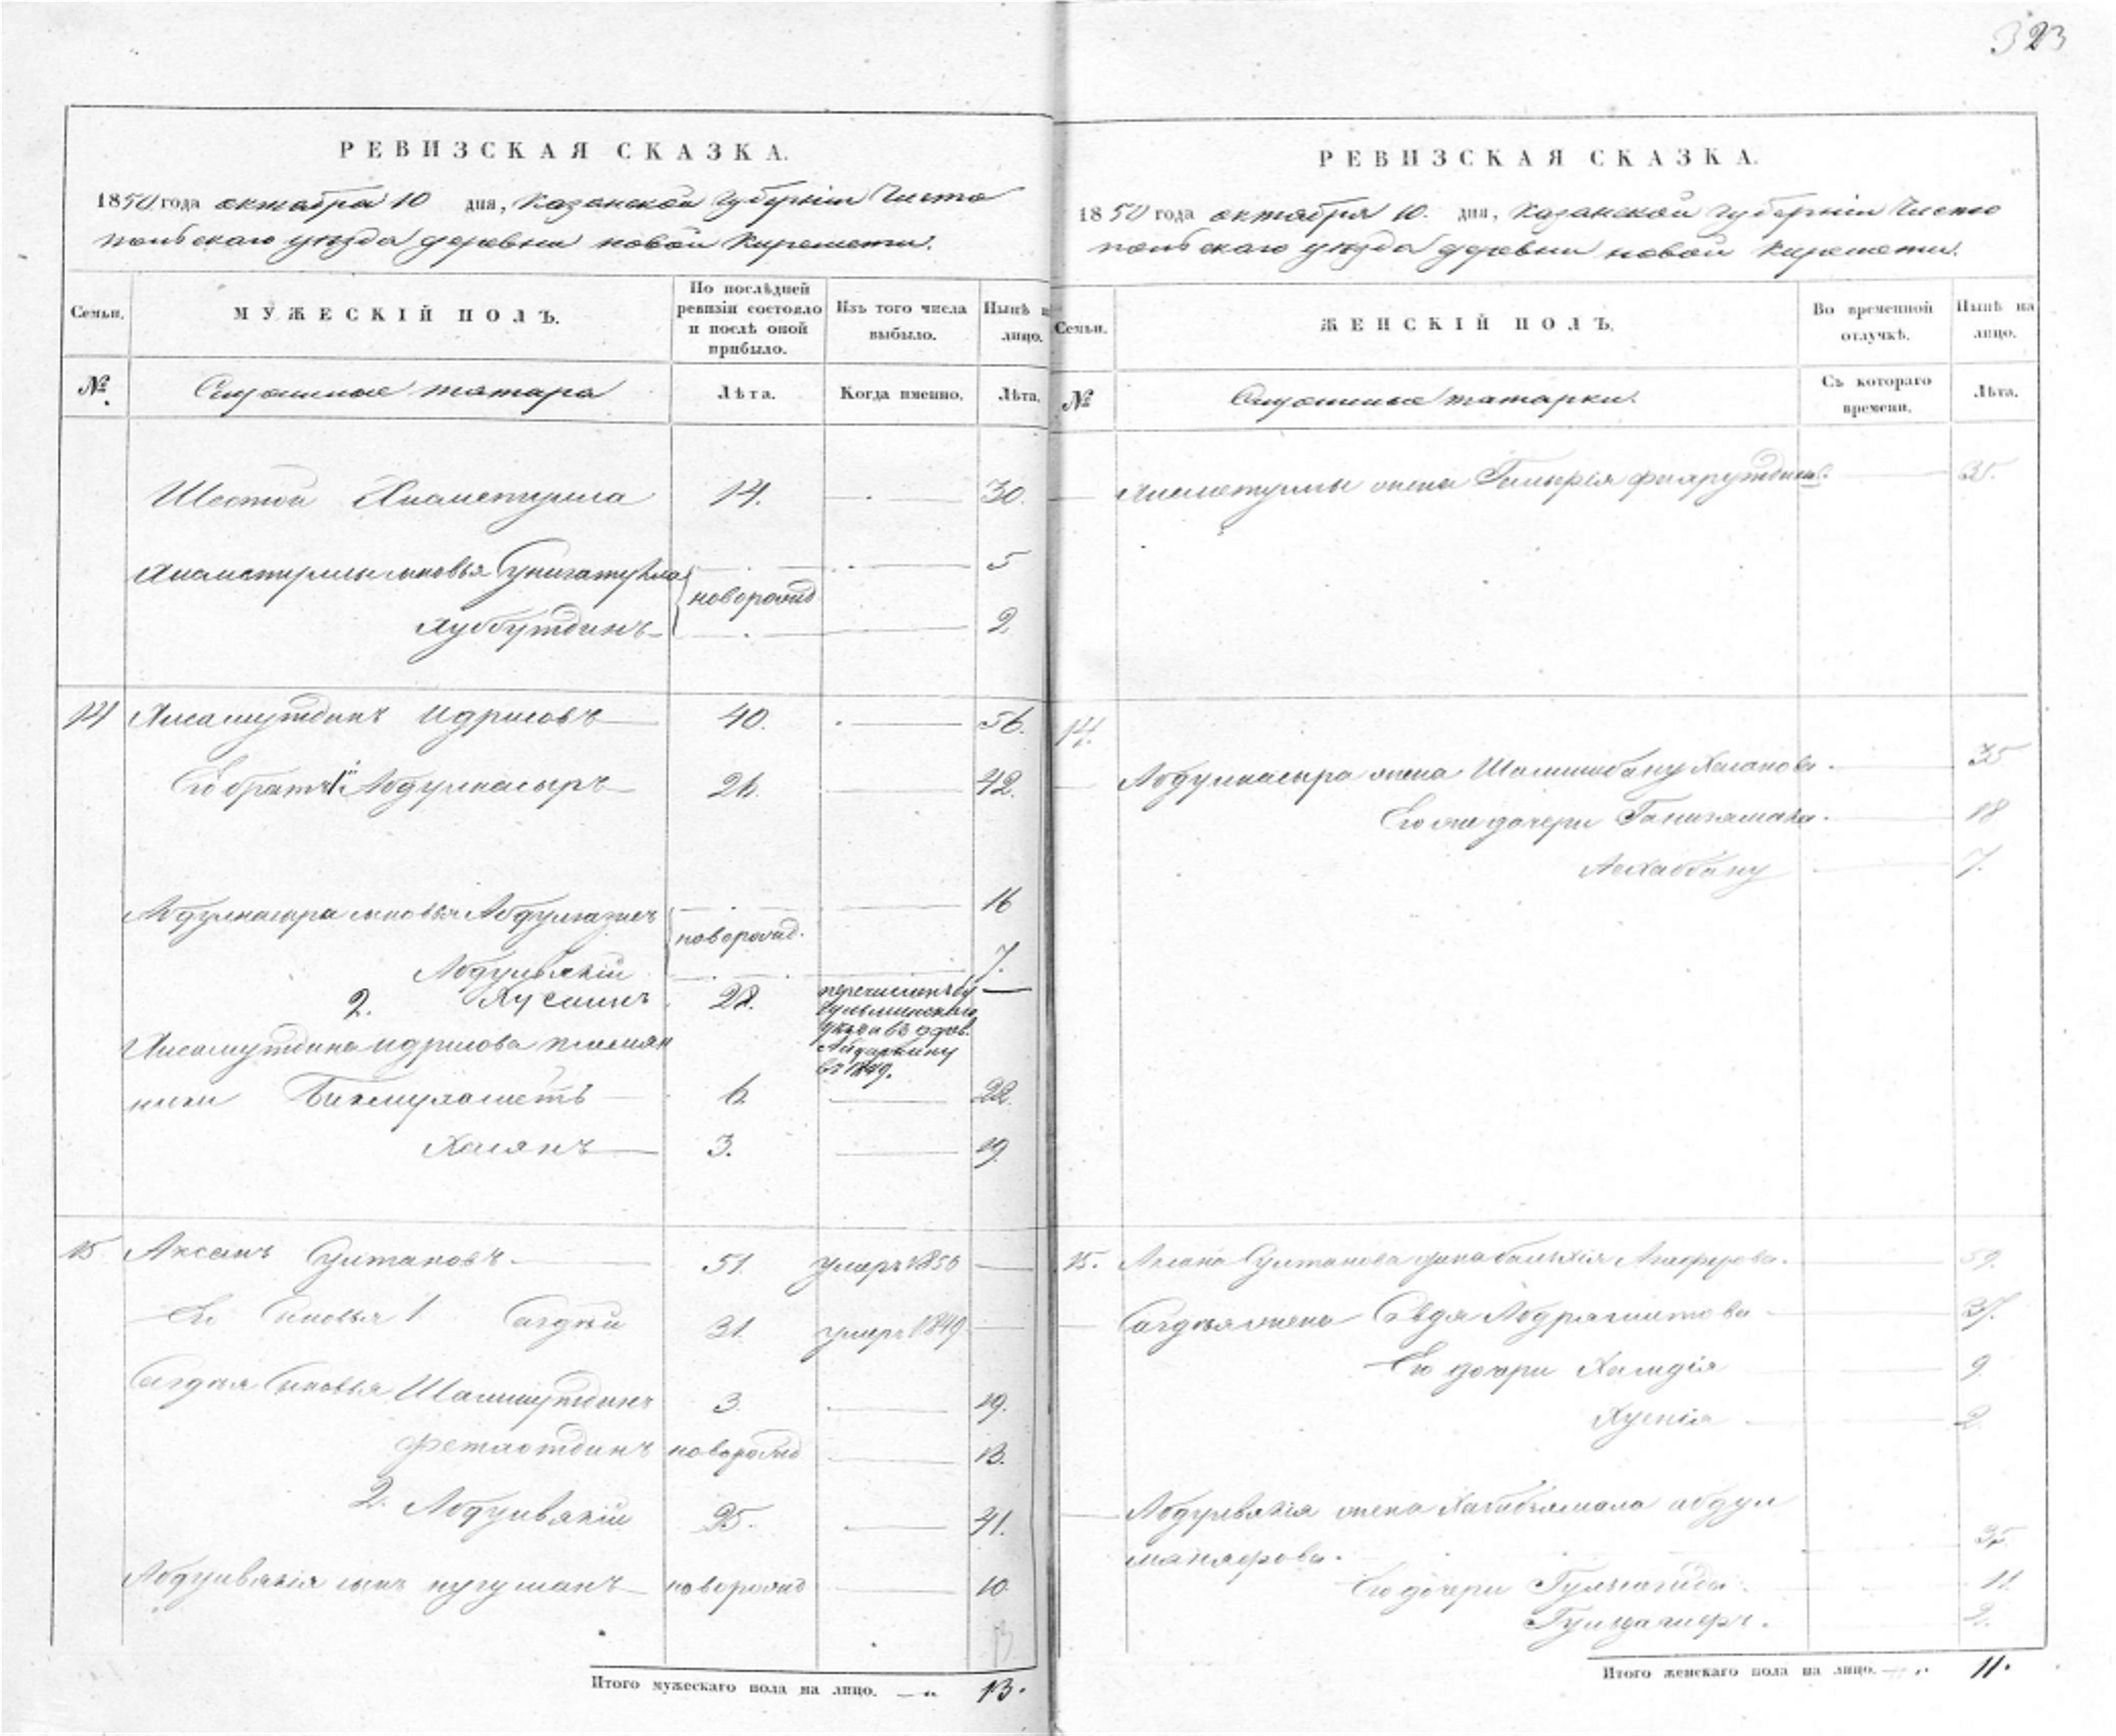 323
РЕВИЗСКАЯ СКАЗКА.
1850 года октября 10 дня, Казанской Губерніи Чисто
польскаго уезда деревни новой Киремети.
Семьи.
МУЖЕСКІЙ ПОЛЪ.
По послѣдней ревизіи состояло и послѣ оной прибыло.
Изъ того числа выбыло.
Нынѣ на лицо.
№
Служилые татара
Лѣта.
Когда именно.
Лѣта.
Шестой Хисаметулла 14. 30.
сыновья 5
новорожд
2
14 Хисамутдинъ Идрисовъ 40. 56.
Его братья 1й Абдулнасыръ 26. 42.
Абдулнасыра сыновья Абдулгазизъ 16
новорожд.
Абдулвякій 7.
2. Хусаинъ 28. перечисленъ Бу
гульминскаго
уезда въ дерев.
въ 1849.
Хисамутдина Идрисова племян
ники Бикмухаметъ 6. 22.
Хасянъ 3. 19.
15 Аксанъ Султановъ 51. умеръ 1850
Его Сыновья 1 Сагдѣй 31. умеръ 1849
Сагдѣя Сыновья Шамшутдинъ 3 19.
новорожд 13.
2. Абдулвякій 25. 41.
Абдулвякія сынъ нугуманъ новорожд 10.
Итого мужескаго пола на лицо. 13.
РЕВИЗСКАЯ СКАЗКА.
1850 года октября 10. дня, Казанской Губерніи Чисто
польскаго уезда деревни новой Киремети.
Семьи.
ЖЕНСКІЙ ПОЛЪ.
Во временной отлучкѣ.
Нынѣ на лицо.
№
Служилые татарки.
Съ котораго времени.
Лѣта.
жена 35.
14.
Абдулнасыра жена Шамшибану Хасанова. 35
Его же дочери 18
7.
15. Аксана Султанова жена 59.
Сагдѣя жена Абдрашитова 37.
Его дочери Хамидія 9.
Хуснія 2
Абдулвякія жена Хабибжямала абдул
35
Его дочери 11.
2.
Итого женскаго пола на лицо. 11.